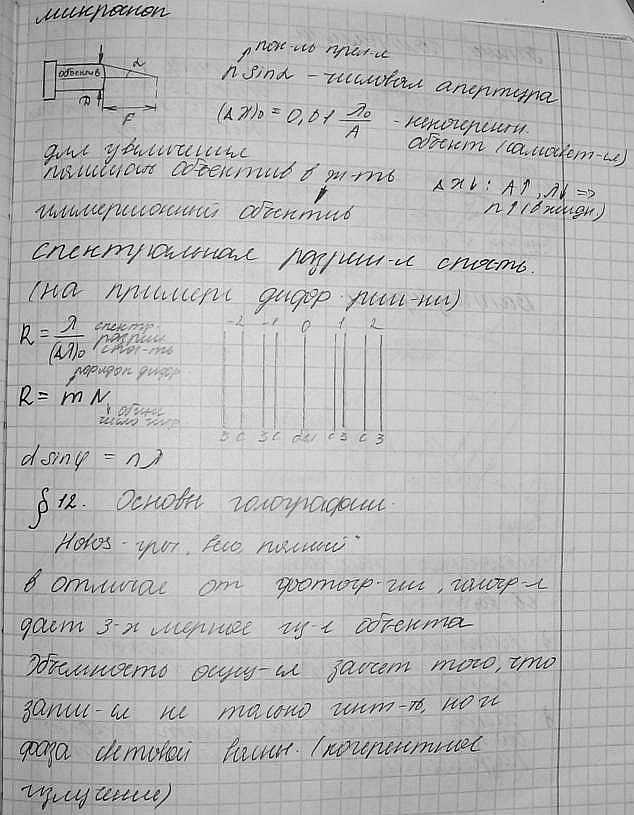 микроскоп
объектив
α
D
F
пок-ль прел-я
n sinα - числовая апертура
(Δx)₀ = 0,61 λ₀/A - некогерентн.
объект (самосвет-ся)
для увеличения
помещают объектив в ж-ть
Δx↓ : A↑, λ↓ =>
n↑ (в жидк.)
иммерсионный объектив
спектральная разреш-я спос-ть.
(на примере дифр. реш-ки)
R = λ/(Δλ)₀ спектр. разреш. спос-ть
порядок дифр.
R = mN
общее число штр.
-2 -1 0 1 2
з с з с бел с з с з
d sinφ = nλ
§ 12. Основы голографии.
Holos - греч. "весь, полный"
в отличае от фотогр-ии, гологр-я
дает 3-х мерное из-е объекта
Объемность осущ-ся засчет того, что
запис-ся не только инт-ть, но и
фаза световой волны. (когерентное
излучение)